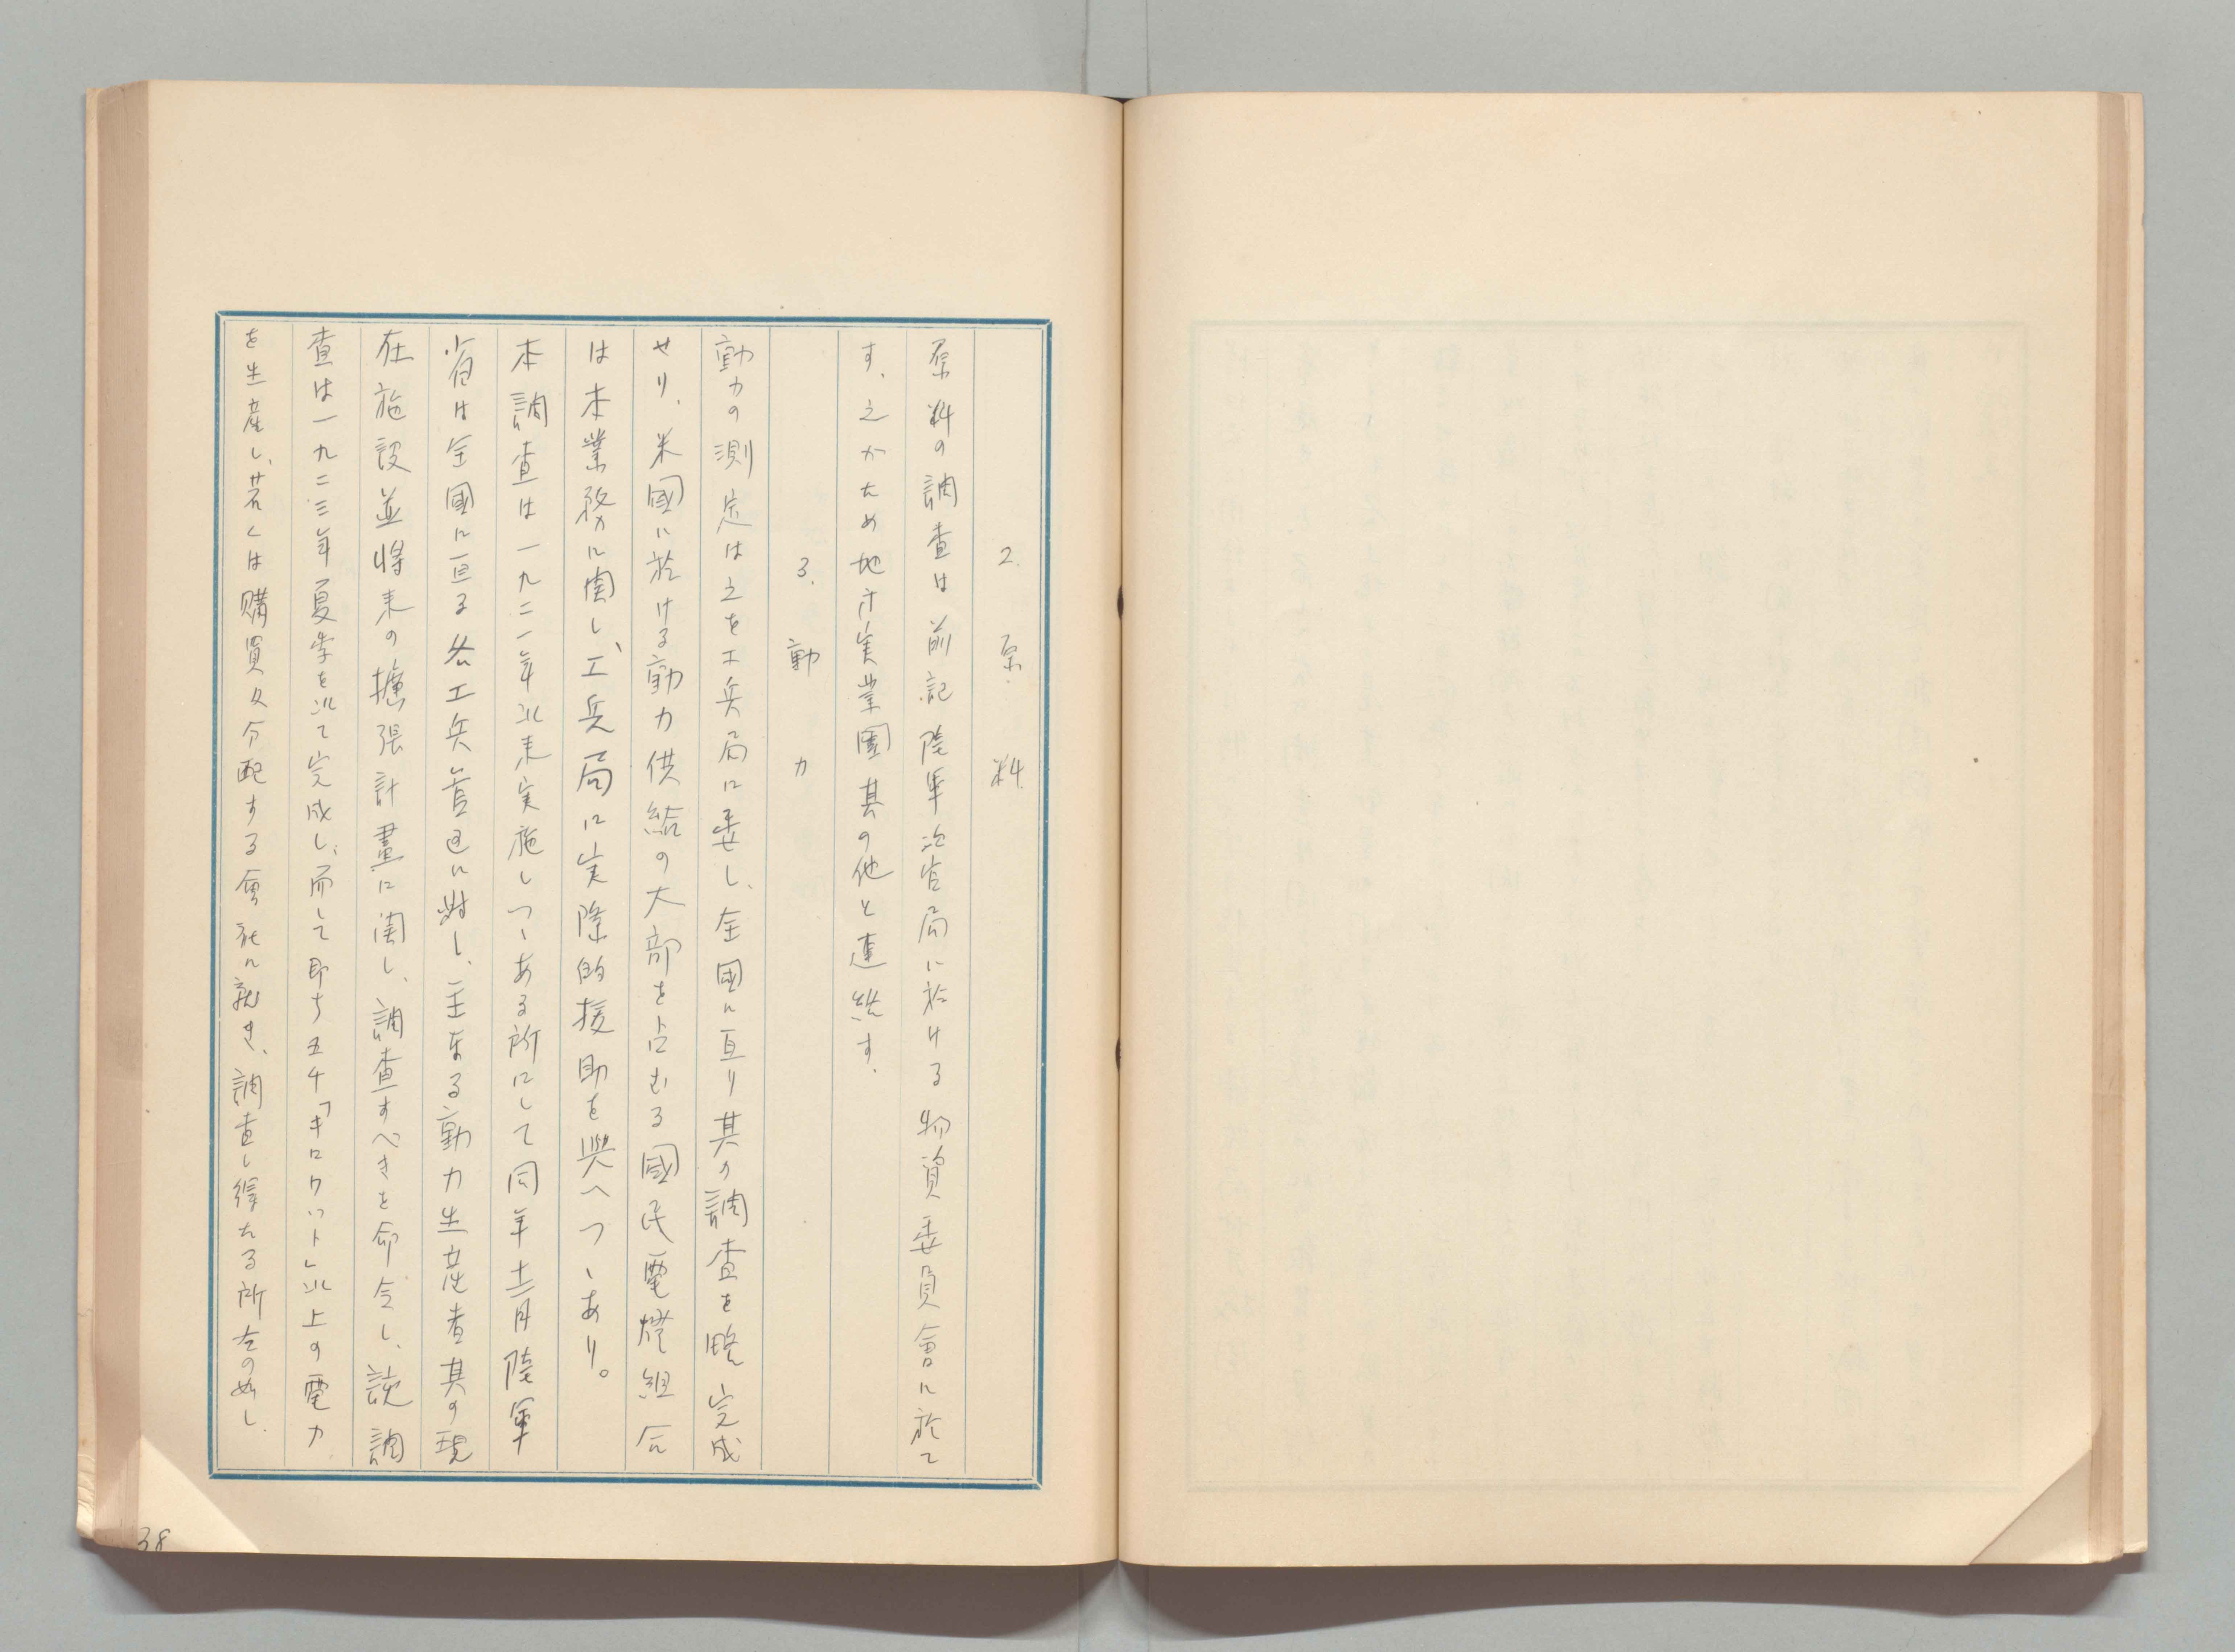 2. 原料
原料の調査は前記陸軍次官局に於ける物資委員會に於て
す、之かため地方実業團其の他と連繋す、
3. 動力
動力の測定は之を工兵局に委し、全國に亘り其の調査を略完成
せり、米國に於ける動力供給の大部を占むる國民電燈組合
は本業務に関し、工兵局に実際的援助を與へつゝあり。
本調査は一九二一年以来実施しつゝある所にして同年十二月陸軍
省は全國に亘る各工兵管区に対し、主なる動力生産者其の現
在施設並将来の擴張計畫に関し、調査すべきを命令し、該調
査は一九二三年夏季を以て完成し、而して即ち五千「キロワット」以上の電力
を生産し、若くは購買又分配する會社に就き、調査し得たる所左の如し、
38